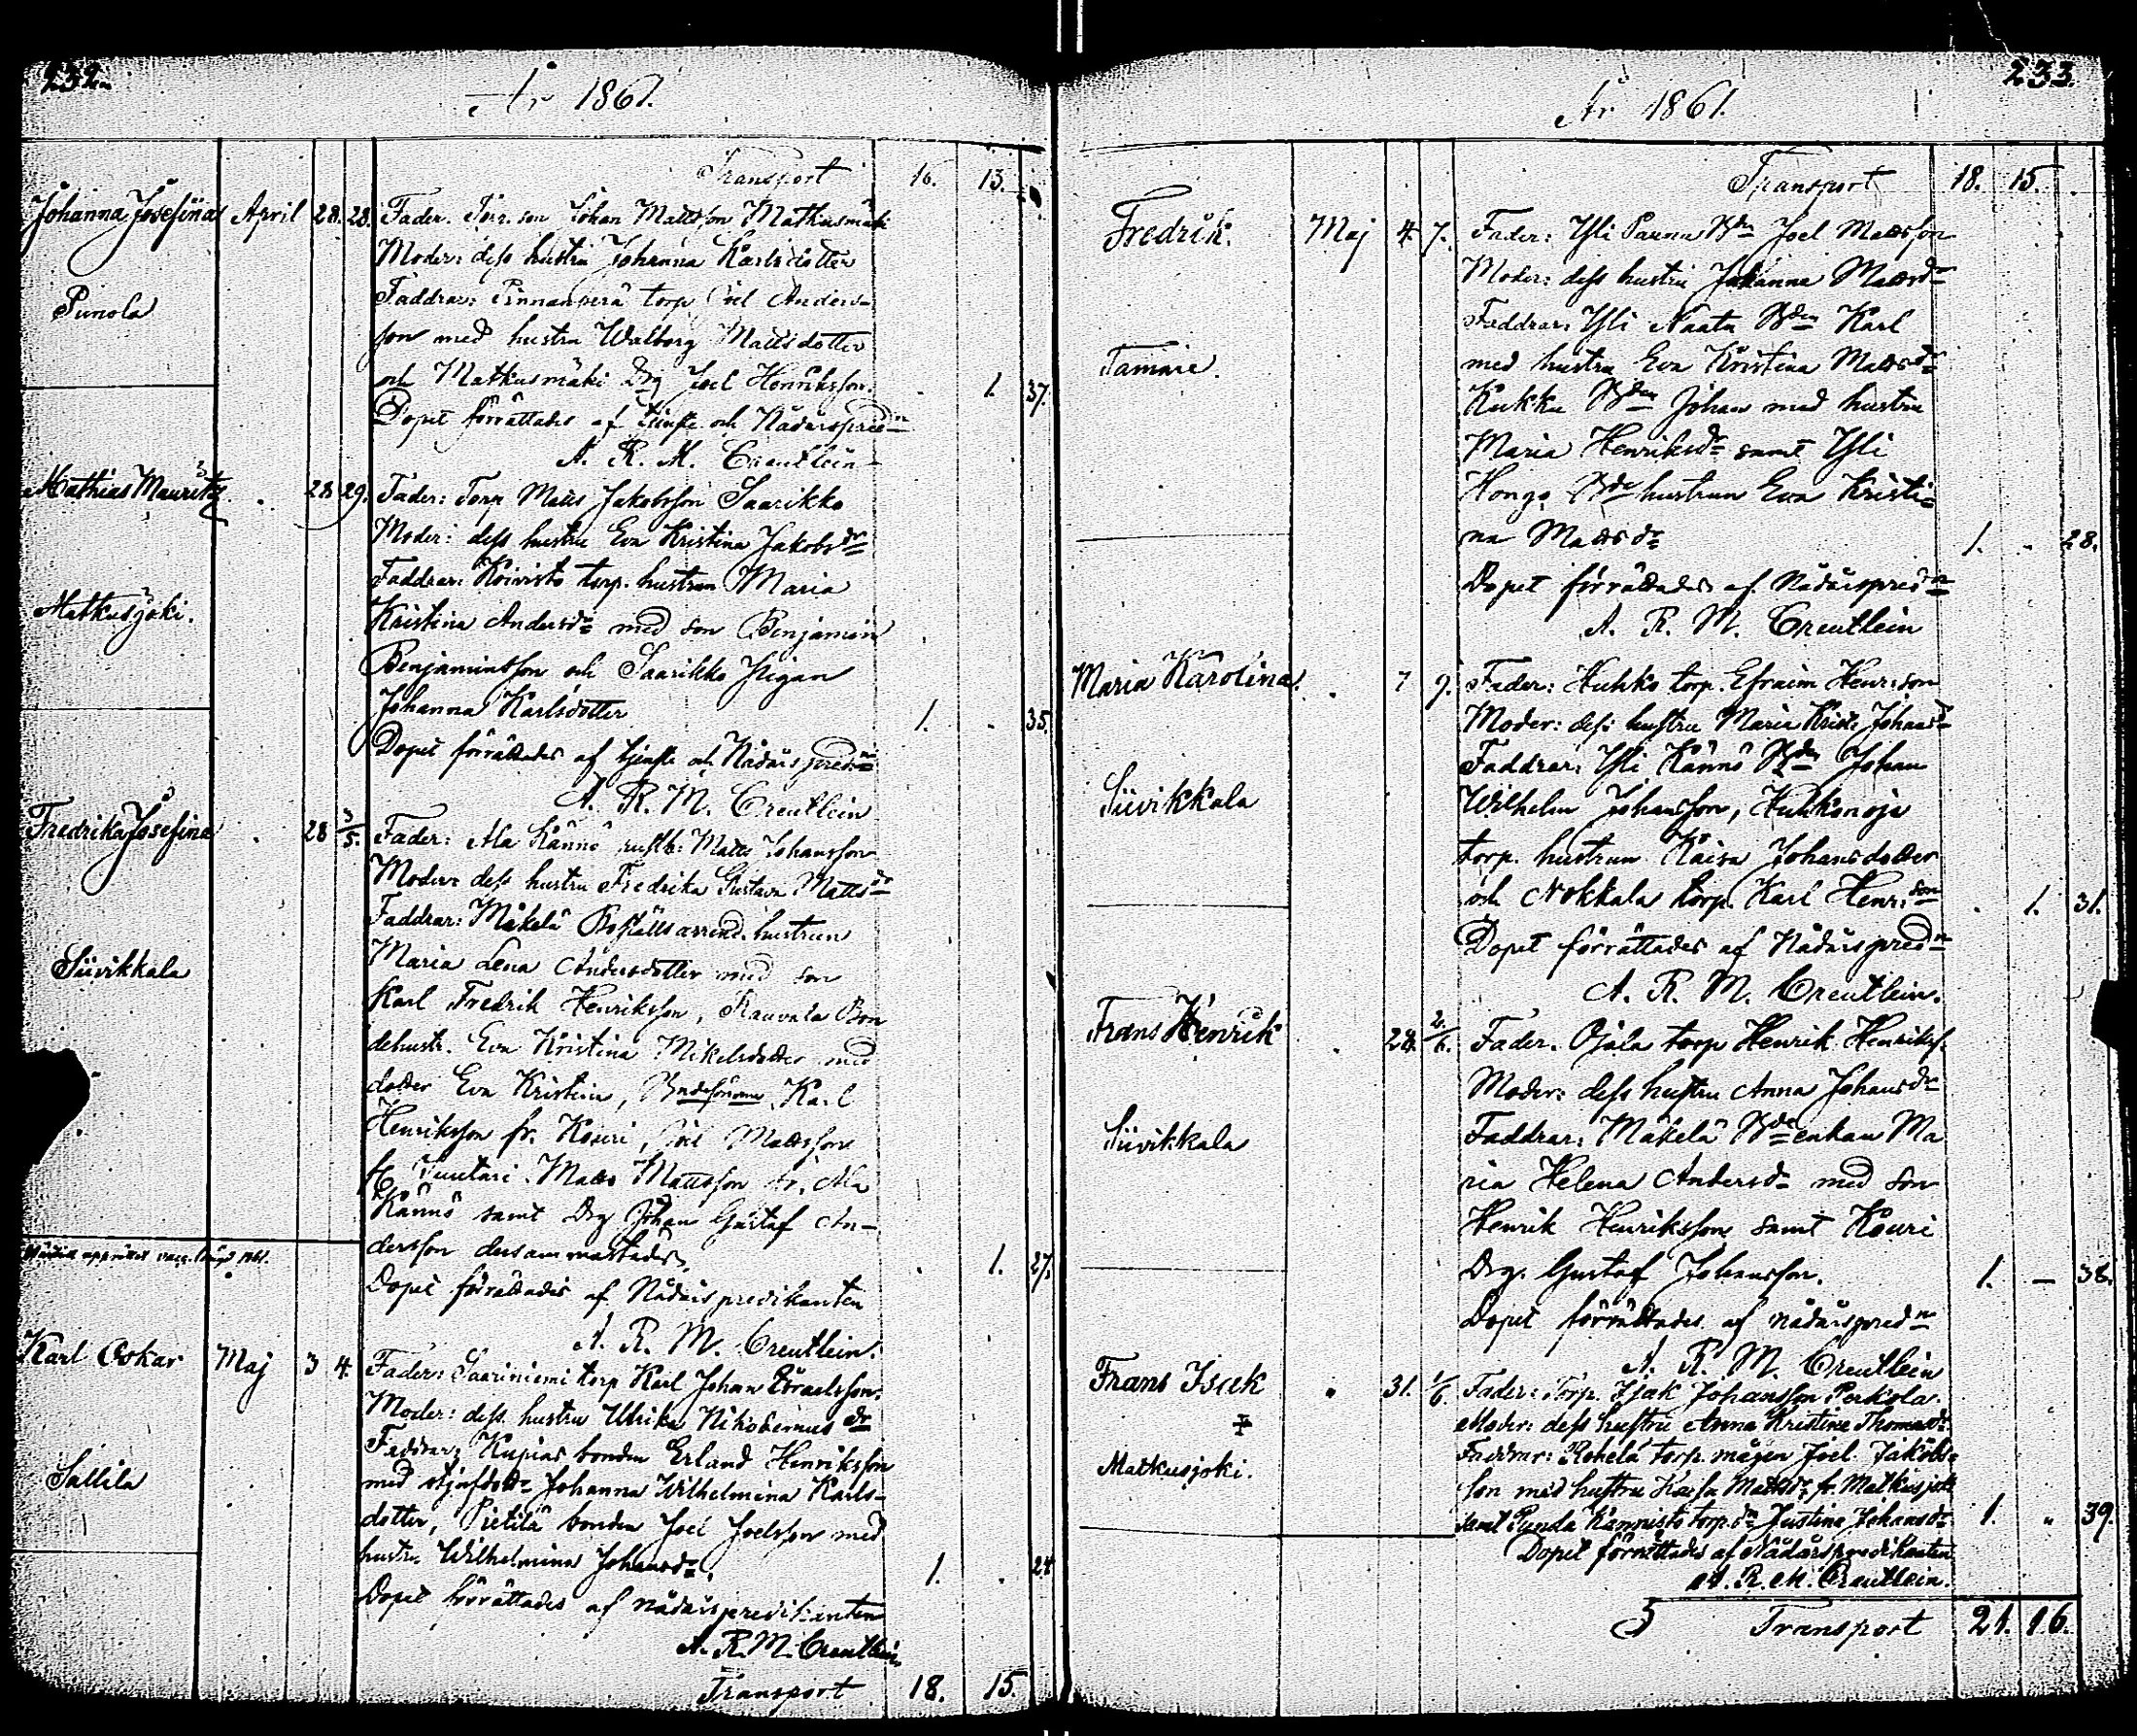 232.
År 1861.
Transport 16. 13.
Johanna Josefina April 28. 28. Fader. Torp. son Johan Mattsson Matkusmäki
Moder: dess hustru Johanna Karlsdotter
Punola
Faddrar: Pinnanperä torp. Joel Anders-
son med hustru Walborg Mattsdotter
och Matkusmäki Drg Joel Henriksson. 1. 37.
Dopet förrättades af tjenste och Nådårspredn
A. R. M. Creutlein
Mathias Mauritz 28 29. Fader: Torp Matts Jakobsson Saarikko
Moder: dess hustru Eva Kristina Jakobsdr
Matkusjoki.
Faddrar: Koivisto torp. hustrun Maria
Kristina Andersdr med son Benjamin
Benjaminsson och Saarikko Pigan
Johanna Karlsdotter 1. 35.
Dopet förrättades af tjenste och Nådårspredn
A. R. M. Creutlein
Fredrika Josefina 28 3/5. Fader: Ala Kännö rusth: Matts Johansson
Moder: dess hustru Fredrika Gustava Mattsdr
Siivikkala
Faddrar: Mäkelä Boställs arrend. hustrun
Maria Lena Andersdotter med son
Karl Fredrik Henriksson, Rauvala Bon
dehustr. Eva Kristina Mikelsdotter med
dotter Eva Kristina, Bndesönerne, Karl
Henriksson fr. Kouri, Joel Mattsson
fr. Matts Mattsson fr. Ala
Kännö samt Drg Johan Gustaf An-
dersson dersammastädes. 1. 27.
Dopet förrättades af Nådårspredikanten
A. R. M. Creutlein.
Karl Oskar Maj 3 4. Fader: Saariniemi torp Karl Johan Israelsson.
Moder: dess hustru Ulrika Nikodemusdr
Sallila
Faddrar: Kupias bonden Erland Henriksson
med Johanna Wilhelmina Karls-
dotter, Pietilä bonden Joel Joelsson med
hustru Wilhelmina Johansdr. 1. 24
Dopet förrättades af nådårspredikanten
A. R. M. Creutlein
Transport 18. 15.
233.
År 1861.
Transport 18. 15.
Fredrik. Maj 4. 7. Fader: Yli Pauna Bdn Joel Mattsson
Moder: dess hustru Johanna Mattsdr
Tamare.
Faddrar: Yli Naata Bden Karl
med hustru Eva Kristina Mattsdr
Kukku Bden Johan med hustru
Maria Henriksdr samt Yli
Hongo Bde hustrun Eva Kristi-
na Mattsdr 1. 28.
Dopet förrättades af Nådårspredn
A. R. M. Creutlein
Maria Karolina. 7 9. Fader: Huhko torp. Efraim Henr:son
Moder: dess hustru Maria Krist. Johansdr
Siivikkala
Faddrar: Yli Kännö Bden Johan
Wilhelm Johansson, Huhkonoja
torp. hustrun Kaisa Johansdotter
och Nokkala torp. Karl Henr:son 1. 31.
Dopet förrättades af Nådårspredn
A. R. M. Creutlein.
Frans Henrik 24. 2/6. Fader. Ojala torp Henrik Henrikss.
Moder: dess hustru Anna Johansdr
Siivikkala
Faddrar: Mäkelä Bdeenkan Ma
ria Helena Andersdr med son
Henrik Henriksson samt Kouri
Drg. Gustaf Johansson. 1. — 38.
Dopet förrättades af nådårspredn
A. R. M. Creutlein
Frans Isak 31. 1/6. Fader: Torp. Isak Johansson Perkola.
Moder: dess hustru Anna Kristina Thomasdr
Matkusjoki.
Faddrar: Rohelä torp. mågen Joel Jakobs-
son med hustru Kaisa Mattsdr fr. Matkusjoki
samt Punda Kannisto torp.dr Justina Johansdr 1. 39.
Dopet förrättades af Nådårspredikanten
A. R. M. Creutlein.
Transport 21. 16.